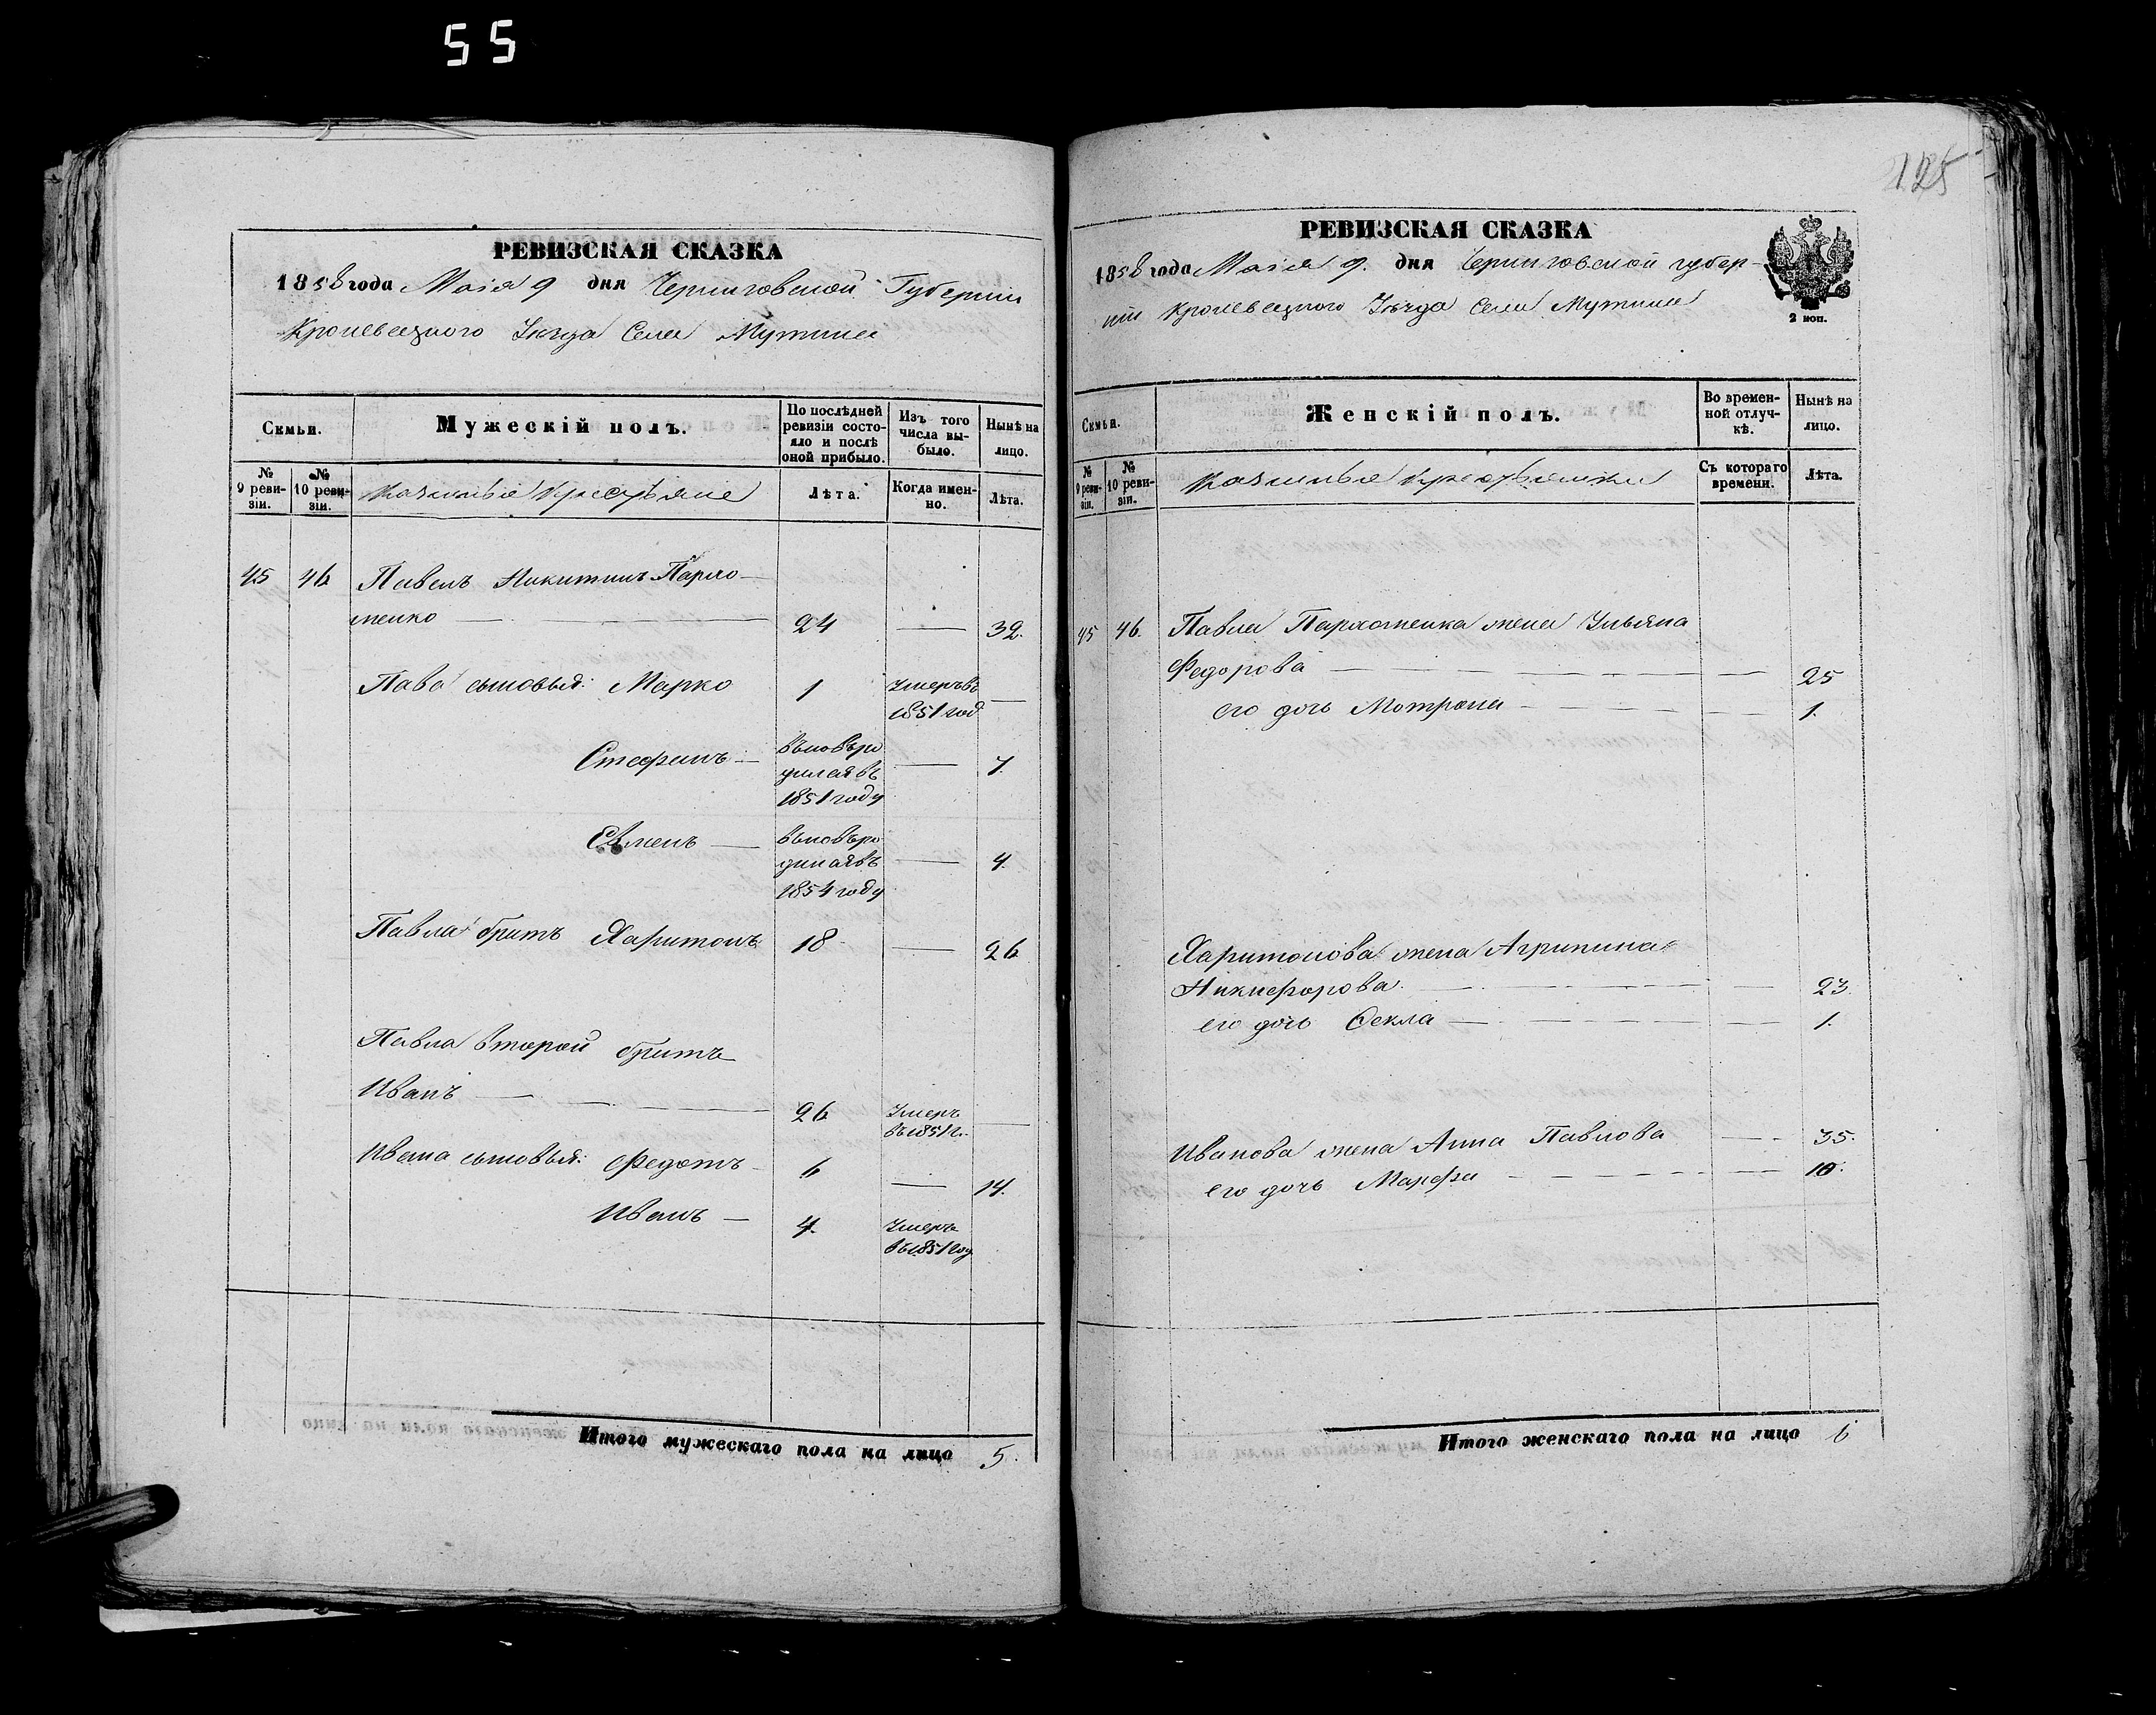 55
125
РЕВИЗСКАЯ СКАЗКА
1858 года Маія 9 дня Черниговской Губерніи
Кролевецкого Уѣзда Села Мутина
Семьи.
Мужескій полъ.
По послѣдней ревизіи состояло и послѣ оной прибыло.
Изъ того числа выбыло.
Нынѣ на лицо.
№ 9 ревизіи.
№ 10 ревизіи.
Казенные Крестьяне
Лѣта.
Когда именно.
Лѣта.
45 46 Павелъ Никитинъ Пархо-
менко — 24 — 32.
Павла сыновья: Марко 1 Умеръ въ 1851 год —
Стефанъ — вновь ро
дился въ — 7.
1851 году
Евменъ — вновь ро
дился въ — 4.
1854 году
Павла братъ Харитонъ 18 — 26
Павла второй братъ
Иванъ — 26 Умеръ въ 1851 г. —
Ивана сыновья: Федотъ 6 — 14.
Иванъ — 4. Умеръ въ 1851 год
Итого мужескаго пола на лицо 5.
РЕВИЗСКАЯ СКАЗКА
1858 года Маія 9. дня Черниговской губер-
ніи Кролевецкого Уѣзда Села Мутина
2 коп.
Семьи.
Женскій полъ.
Во временной отлучкѣ.
Нынѣ на лицо.
№ 9 ревизіи.
№ 10 ревизіи.
Казенные Крестьянки
Съ котораго времени.
Лѣта.
45 46. Павла Пархоменка жена Ульяна
Федорова — — 25
его дочь Мотрона — — 1.
Харитонова жена Агрипина
Никифорова — — 23.
его дочь Фекла — — 1.
Иванова жена Анна Павлова — 35.
его дочь Марфа — — 10.
Итого женскаго пола на лицо 6